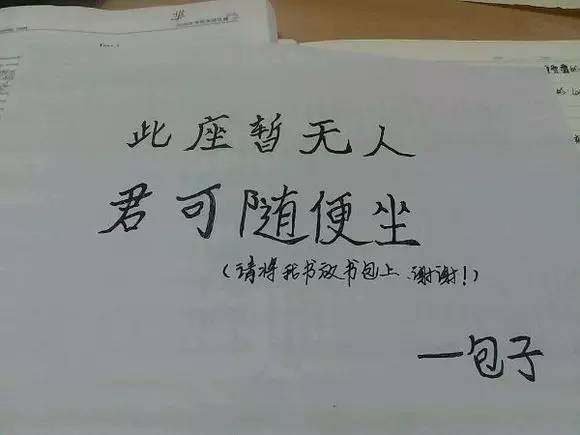 此座暂无人
君可随便坐
(请将我书放书包上.谢谢!)
一包子